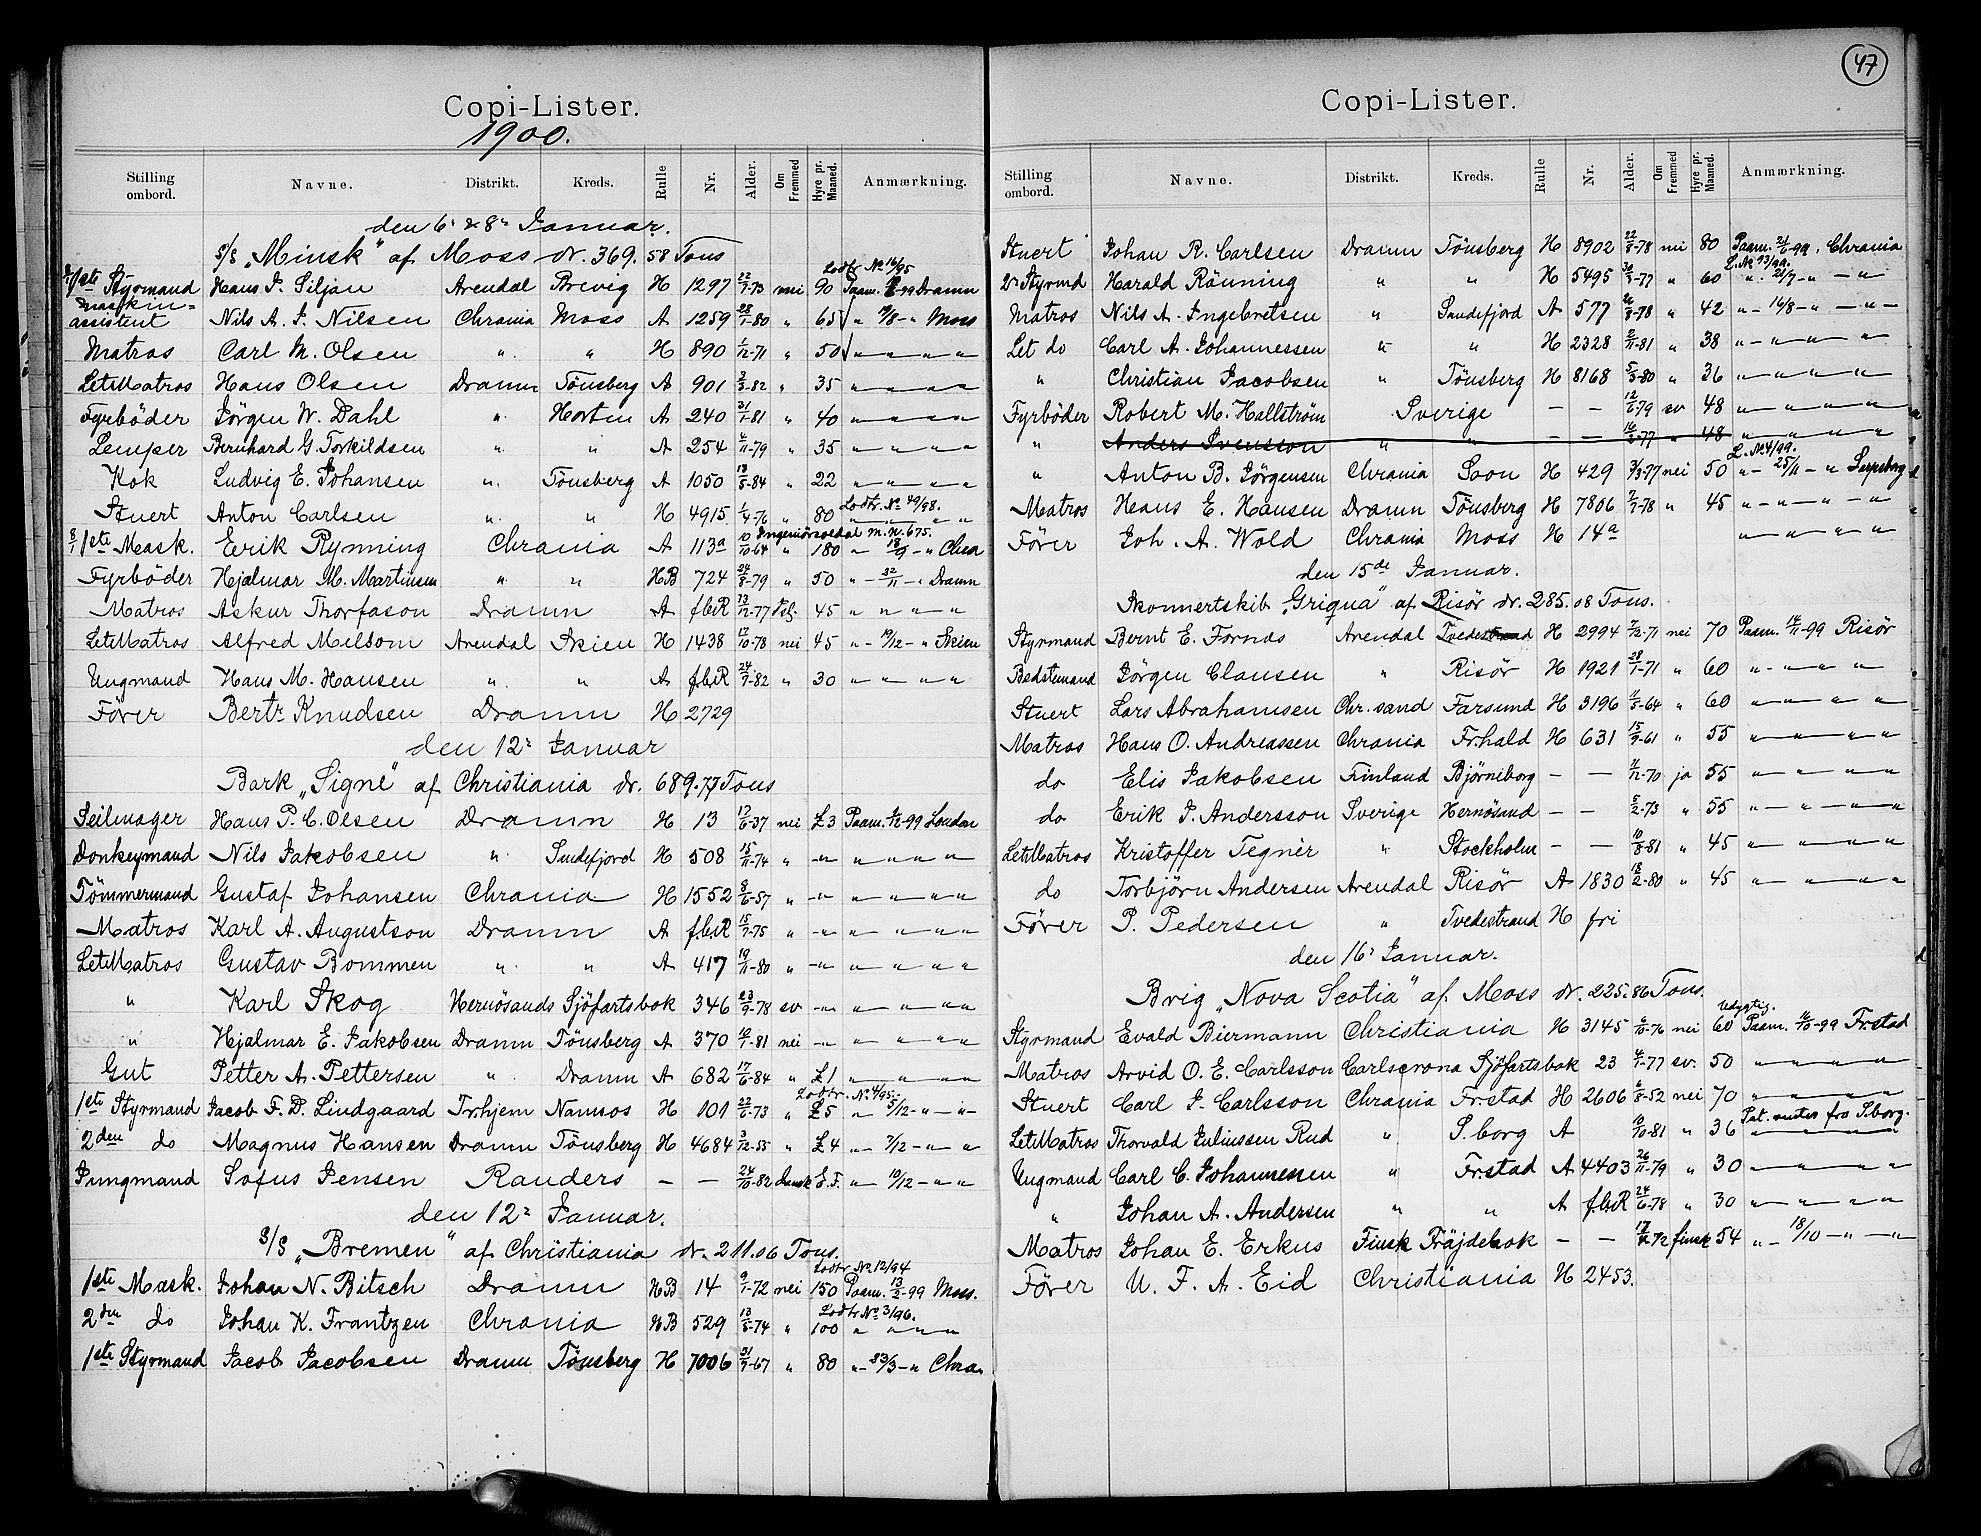 Copi-Lister.
1900.
Stilling ombord. Navne. Distrikt. Kreds. Rulle Nr. Alder. Om Fremmed Hyre pr. Maaned. Anmærkning.
den 6' & 8' Januar.
S/S „Minsk" af Moss dr. 369.58 Tons
Lodtr No 16/95
1ste Styrmand Hans J. Siljan Arendal Brevig H 1297 22/7-73 nei 90 Paam. -99 Dramn
Maskin-
assistent Nils A. J. Nilsen Chrania Moss A 1259 28/1-80 " 65 " 19/8 - " Moss
Matros Carl M. Olsen " " H 890 1/12-71 " 50 " " " "
LetMatros Hans Olsen Dramn Tönsberg A 901 3/3-82 " 35 " " " "
Fyrböder Jörgen W. Dahl " Horten A 240 31/1-81 " 40 " " " "
Lemper Bernhard G. Torkildsen " " A 254 4/11-79 " 35 " " " "
Kok Ludvig E. Johansen " Tönsberg A 1050 13/5-84 " 22 " " " "
Lodtr. No 49/98.
Stuert Anton Carlsen " " H 4915 1/4-76 " 80 " " " "
Ingeniörsoldat m. n. 675.
8/1 1ste Mask. Erik Rynning Chrania A 113a 10/10-64 " 180 " - 18/9 - " Chra
Fyrböder Hjalmar M. Martinsen " " HB 724 24/8-79 " 50 " - 22/11 - " Dramn
Matros Askur Thorfason Dramn A f.b.R 13/12-77 Isl. 45 " " " "
LetMatros Alfred Meldom Arendal Skien H 1438 17/10-78 nei 45 " - 19/12 - " Skien
Ungmand Hans M. Hansen " " A f.b.R 24/7-82 " 30 " " " "
Förer Bertr Knudsen Dramn H 2729
den 12' Januar
Bark „Signe" af Christiania dr. 689.77 Tons
Seilmager Hans P. C. Olsen Dramn H 13 17/6-37 nei £3 Paam. 1/12-99 London
Donkeymand Nils Jakobsen " Sandefjord H 508 15/11-74 " " " " " "
Tömmermand Gustaf Johansen Chrania H 1552 8/6-57 " " " " " "
Matros Karl A. Augustson Dramn A f.b.R 15/7-75 " " " " " "
LetMatros Gustav Bommen " " A 417 19/11-80 " " " " " "
" Karl Skog Hernösands Sjöfartsbok 346 23/9-78 sv " " " " "
" Hjalmar E. Jakobsen Dramn Tönsberg A 370 10/1-81 nei " " " " "
Gut Petter A. Pettersen " Dramn A 682 17/6-84 " £1 " " " "
Lodtr. No 4/95.
1ste Styrmand Jacob F. D. Lindgaard Tr.hjem Namsos H 101 22/6-73 " £5 " 5/12 - " - " -
2den do Magnus Hansen Dramn Tönsberg H 4684 3/12-55 " £4 " - 7/12 - " "
Jungmand Sofus Jensen Randers — — 24/10-82 dansk E.F. " 19/12 - " "
den 12' Januar.
S/S „Bremen" af Christiania dr. 211.06 Tons.
Lodtr No 12/94
1ste Mask. Johan N. Bitsch Dramn HB 14 9/1-72 nei 150 Paam. 13/2-99 Moss.
Lodtr No 3/96.
2den do Johan K. Frantzen Chrania HB 529 13/8-74 " 100 " " " "
1ste Styrmand Jacob Jacobsen Dramn Tönsberg H 7006 31/7-67 " 80 " - 23/3 - " Chra.
47
Copi-Lister.
Stilling ombord. Navne. Distrikt. Kreds. Rulle Nr. Alder. Om Fremmed Hyre pr. Maaned. Anmærkning.
Stuert Johan R. Carlsen Dramn Tönsberg H 8902 22/8-78 nei 80 Paam. 21/6-99. Chrania
L. No 93/99.
2' Styrmd Harald Rönning " " H 5495 30/3-77 " 60 " 21/7 - " - "
Matros Nils A. Ingebretsen " Sandefjord A 577 26/8-78 " 42 " - 16/8 - " - " -
Let do Carl A. Johannessen " " H 2328 2/11-81 " 38 " " " "
" Christian Jacobsen " Tönsberg H 8168 5/3-80 " 36 " " " "
Fyrböder Robert M. Hallström Sverige — — 12/6-79 sv 48 " " " "
" Anders Svensson " " — — 16/2-77 " 48 " " " "
L. No 4/99.
" Anton B. Jörgensen Chrania Soon H 429 3/9-77 nei 50 " - 25/11 - " Sarpsborg
Matros Hans E. Hansen Dramn Tönsberg H 7806 7/7-78 " 45 " " " "
Förer Joh. A. Wold Chrania Moss H 14a " " " "
den 15de Januar.
Skonnertskib „Griqua" af Risör dr. 285.08 Tons.
Styrmand Bernt E. Fornds Arendal Tvedestrand H 2994 7/12-71 nei 70 Paam. 14/11-99 Risör
Bedstemand Jörgen Clausen " Risör H 1921 28/1-71 " 60 " " " "
Stuert Lars Abrahamsen Chr.sand Farsund H 3196 11/5-64 " 60 " " " "
Matros Hans O. Andreassen Chrania Fr.hald H 631 15/9-61 " 55 " " " "
do Elis Jakobsen Finland Björneborg — — 11/12-70 ja 55 " " " "
do Erik J. Andersson Sverige Hernösand — — 5/2-73 " 55 " " " "
LetMatros Kristoffer Tegnér " Stockholm — — 10/8-81 " 45 " " " "
do Torbjörn Andersen Arendal Risör A 1830 18/2-80 " 45 " " " "
Förer P. Pedersen " Tvedestrand H fri
den 16' Januar.
Brig „Nova Scotia" af Moss dr. 225.86 Tons.
Styrmand Evald Biermann Christiania H 3145 6/10-76 nei 60 Paam. 16/10-99 Fr.stad
Matros Arvid O. E. Carlsson Carlscrona Sjöfartsbok 23 4/7-77 sv. 50 " " " "
Stuert Carl J. Carlsson Chrania Fr.stad H 2606 6/8-52 nei 70 " " " "
Pat. muster fra S.borg.
LetMatros Thorvald Juliussen Rud " S.borg A 10/10-81 " 36 " " " "
Ungmand Carl C. Johannesen " Fr.stad A 4403 26/11-79 " 30 " " " "
" Johan A. Andersen " " A f.b.R 24/6-78 " 30 " " " "
Matros Johan E. Erkus Finsk Fräjdebok — — 17/4-72 finsk 54 " - 18/10 - " - "
Förer U. F. A. Eid Christiania H 2453.